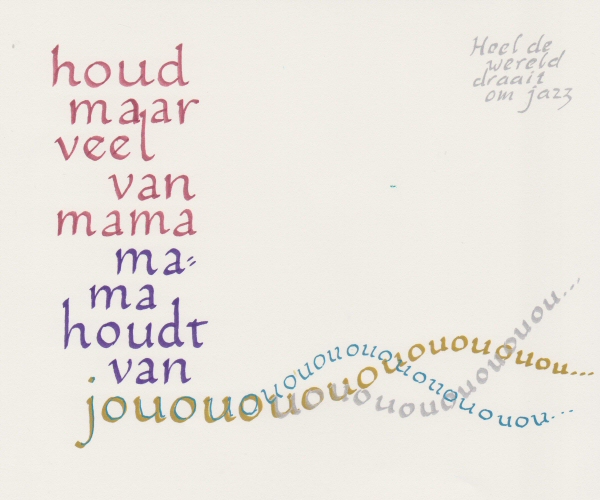 houd
maar
veel
van
mama
ma=
ma
houdt
van
jouououououououououououou...
Heel de
wereld
draait
om jazz